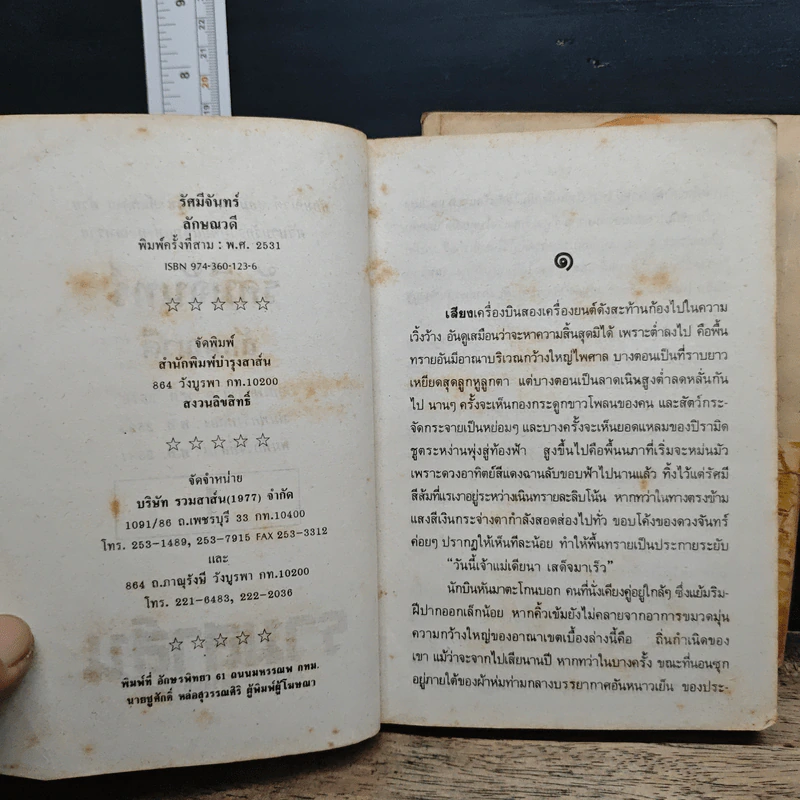 รัศมีจันทร์
ลักษณวดี
พิมพ์ครั้งที่สาม : พ.ศ. 2531
ISBN 974-360-123-6
☆ ☆ ☆ ☆ ☆
จัดพิมพ์
สำนักพิมพ์บำรุงสาส์น
864 วังบูรพา กท.10200
สงวนลิขสิทธิ์
☆ ☆ ☆ ☆ ☆
จัดจำหน่าย
บริษัท รวมสาส์น(1977) จำกัด
1091/86 ถ.เพชรบุรี 33 กท.10400
โทร. 253-1489, 253-7915 FAX 253-3312
และ
864 ถ.ภาณุรังษี วังบูรพา กท.10200
โทร. 221-6483, 222-2036
☆ ☆ ☆ ☆ ☆
พิมพ์ที่ อักษรพิทยา 61 ถนนมหรรณพ กทม.
นายชูศักดิ์ หล่อสุวรรณศิริ ผู้พิมพ์ผู้โฆษณา
๑
เสียงเครื่องบินสองเครื่องยนต์ดังสะท้านก้องไปในความ
เวิ้งว้าง อันดูเสมือนว่าจะหาความสิ้นสุดมิได้ เพราะต่ำลงไป คือพื้น
ทรายอันมีอาณาบริเวณกว้างใหญ่ไพศาล บางตอนเป็นที่ราบยาว
เหยียดสุดลูกหูลูกตา แต่บางตอนเป็นลาดเนินสูงต่ำลดหลั่นกัน
ไป นานๆ ครั้งจะเห็นกองกระดูกขาวโพลนของคน และสัตว์กระ-
จัดกระจายเป็นหย่อมๆ และบางครั้งจะเห็นยอดแหลมของปิรามิด
ชูตระหง่านพุ่งสู่ท้องฟ้า สูงขึ้นไปคือพื้นนภาที่เริ่มจะหม่นมัว
เพราะดวงอาทิตย์สีแดงฉานลับขอบฟ้าไปนานแล้ว ทิ้งไว้แต่รัศมี
สีส้มที่แรเงาอยู่ระหว่างเนินทรายละลิบโน้น หากทว่าในทางตรงข้าม
แสงสีเงินกระจ่างตากำลังสอดส่องไปทั่ว ขอบโค้งของดวงจันทร์
ค่อยๆ ปรากฏให้เห็นทีละน้อย ทำให้พื้นทรายเป็นประกายระยับ
"วันนี้เจ้าแม่เดียนา เสด็จมาเร็ว"
นักบินหันมาตะโกนบอก คนที่นั่งเคียงคู่อยู่ใกล้ๆ ซึ่งแย้มริม-
ฝีปากออกเล็กน้อย หากคิ้วเข้มยังไม่คลายจากอาการขมวดมุ่น
ความกว้างใหญ่ของอาณาเขตเบื้องล่างนี้คือ ถิ่นกำเนิดของ
เขา แม้ว่าจะจากไปเสียนานปี หากทว่าในบางครั้ง ขณะที่นอนซุก
อยู่ภายใต้ของผ้าห่มท่ามกลางบรรยากาศอันหนาวเย็น ของประ-